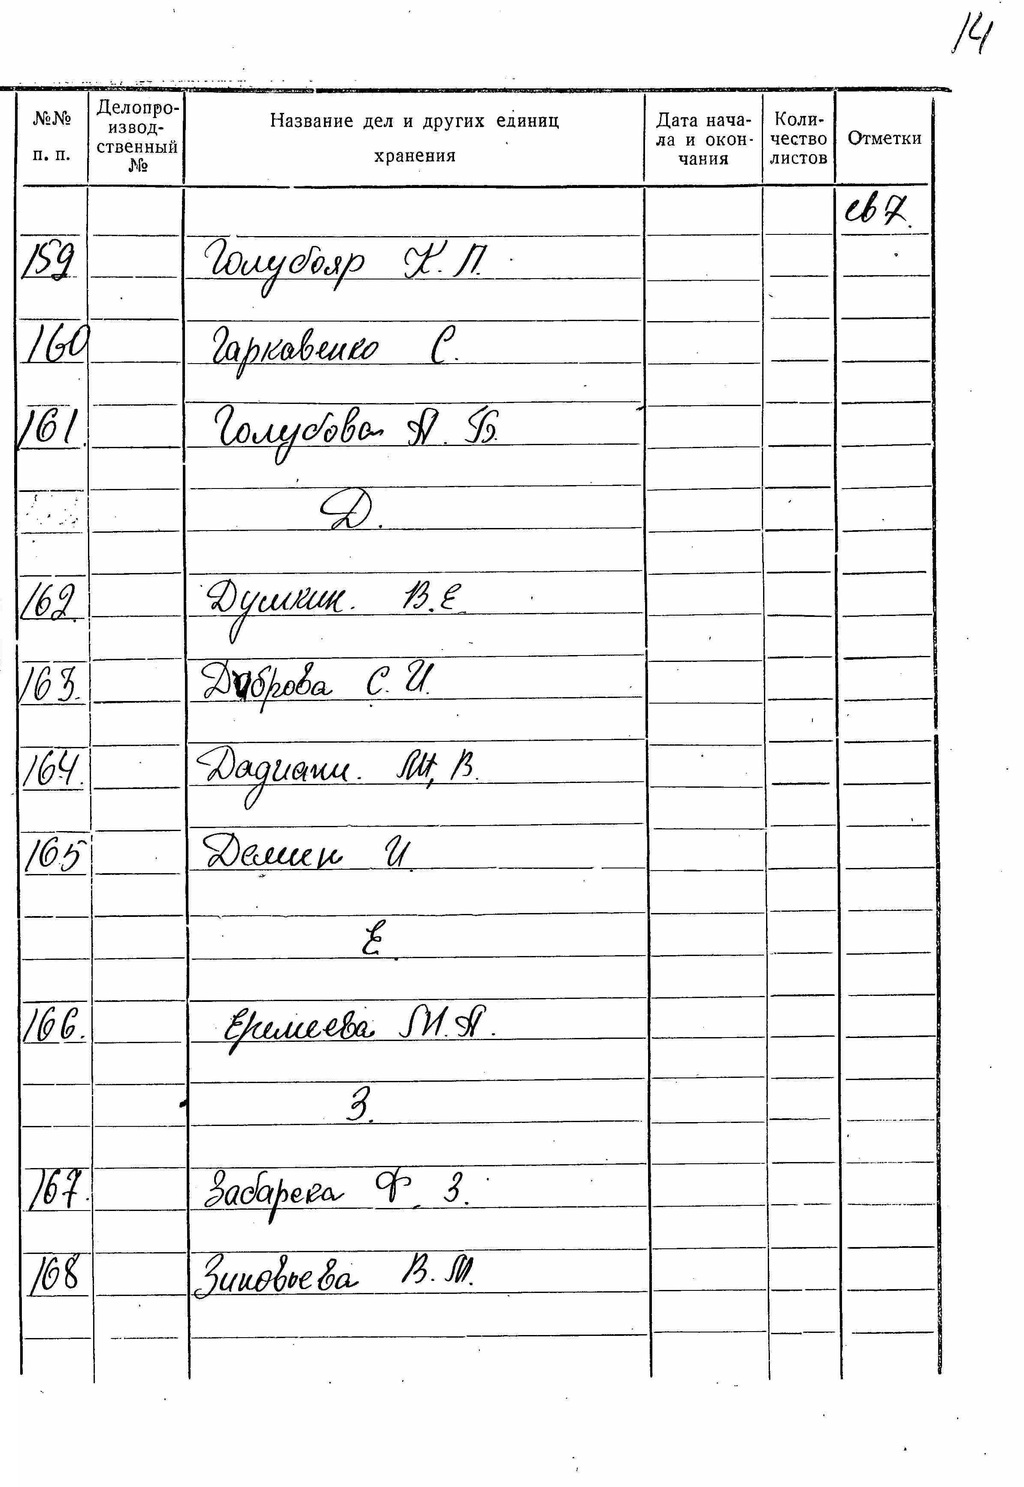 14
№№ п. п. Делопроизводственный № Название дел и других единиц хранения Дата начала и окончания Количество листов Отметки
св 7.
159 Голубояр К. П.
160 Гаркавенко С.
161. Голубова А. Б.
Д.
162. Думкин. В. Е.
163. Доброва С. И.
164. Дадиани. М. В.
165 Демин И.
Е.
166. Еремеева М. А.
З.
167. Забарека Ф. З.
168 Зиновьева В. М.